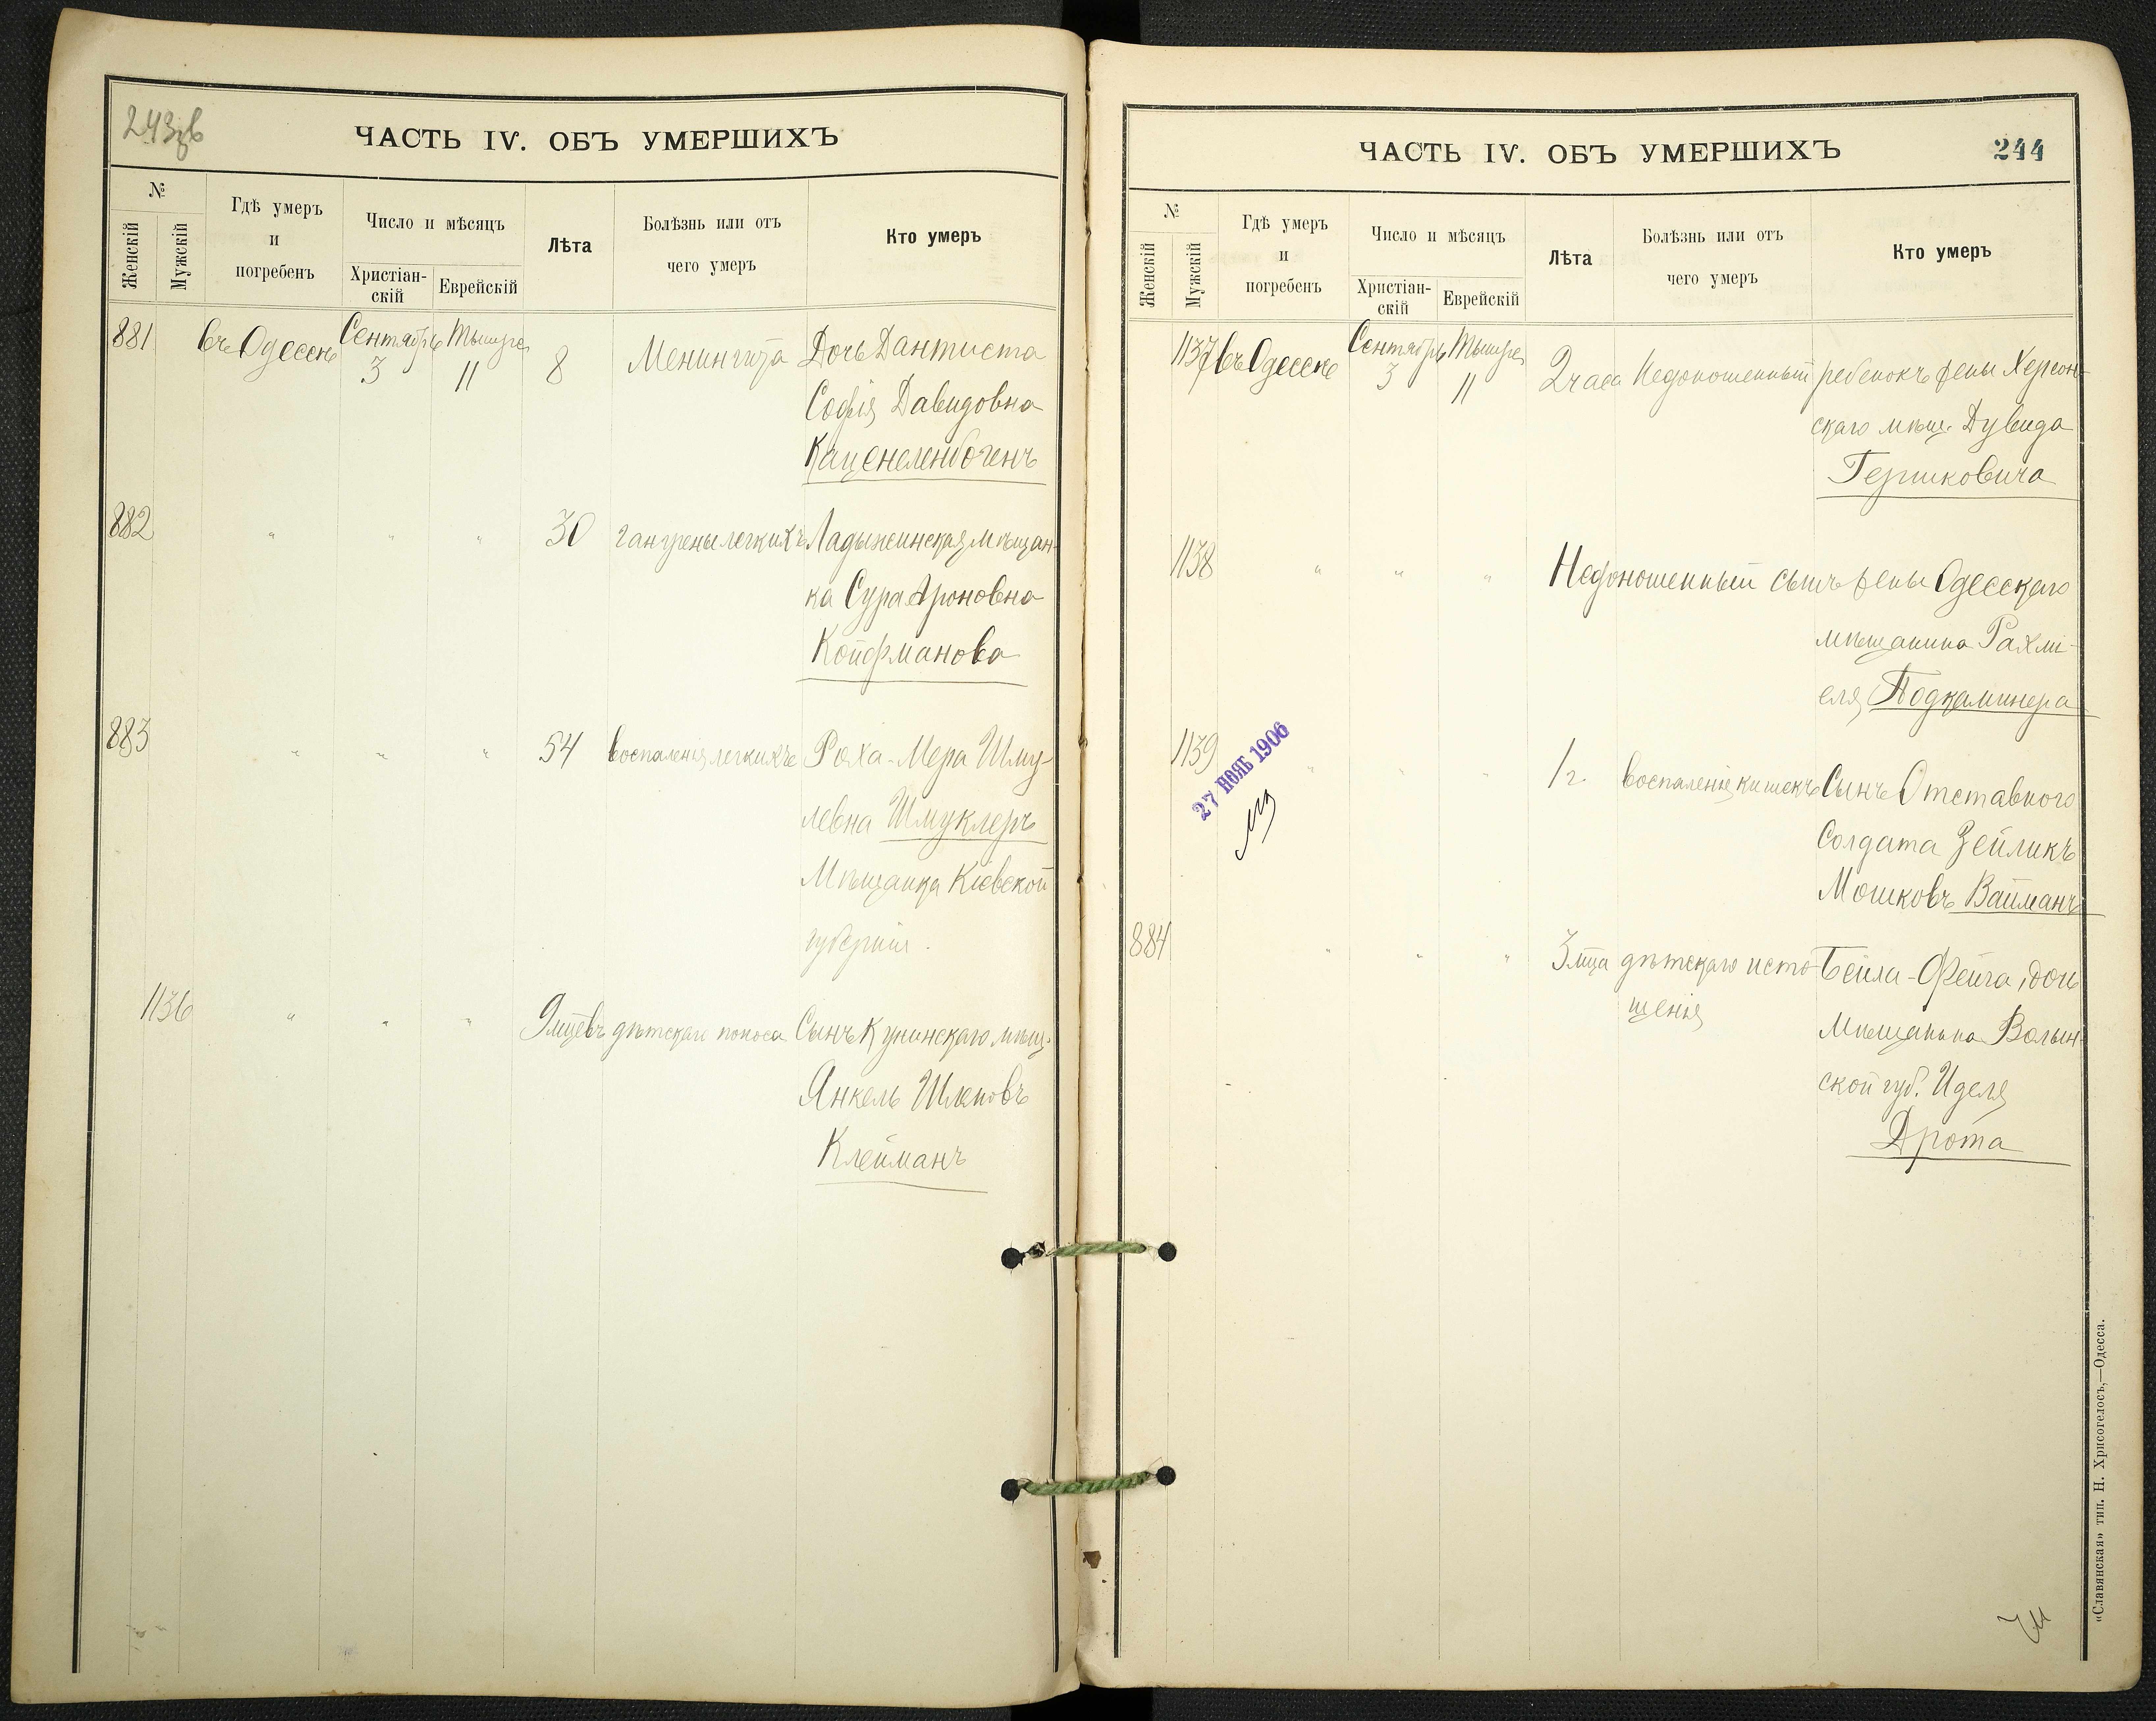 243 зв
ЧАСТЬ IV. ОБЪ УМЕРШИХЪ
№
Женскій
Мужскій
Гдѣ умеръ
и
погребенъ
Число и мѣсяцъ
Христіан-
скій
Еврейскій
Лѣта
Болѣзнь или отъ
чего умеръ
Кто умеръ
881 въ Одессѣ Сентябрь 3 Тышре 11 8 Менингита Дочь Дантиста
Софія Давидовна
Каценеленбогенъ
882 " " " 30 гангрены легкихъ Ладыжинская мѣщан-
ка Сура Ароновна
Койфманова
883 " " " 54 воспаленія легкихъ Роха-Мера Шму-
левна Шмуклеръ
Мѣщанка Кіевской
губерніи.
1136 " " " 9 мцевъ дѣтскаго поноса Сынъ Кунинскаго мѣщ.
Янкель
Клейманъ
ЧАСТЬ IV. ОБЪ УМЕРШИХЪ
244
№
Женскій
Мужскій
Гдѣ умеръ
и
погребенъ
Число и мѣсяцъ
Христіан-
скій
Еврейскій
Лѣта
Болѣзнь или отъ
чего умеръ
Кто умеръ
1137 въ Одессѣ Сентябрь 3 Тышре 11 2 часа Недоношенный ребенокъ жены Херсон-
скаго мѣщ. Дувида
Гершковича
1138 " " " Недоношенный сынъ жены Одесскаго
мѣщанина Рахми-
еля Подкаминера
1139 " " " 1 г. воспаленіе кишекъ Сынъ Отставного
Солдата Зейликъ
Мошковъ Вайманъ
27 НОЯБ 1906
884 " " " 3 мца дѣтскаго исто- Бейла-Фейга, дочь
щенія
Мѣщанина Волын-
ской губ. Иделя
Дрота
«Славянская» тип. Н. Хрисогелосъ,—Одесса.